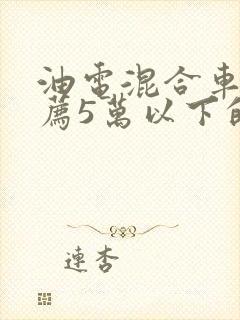 油電混合車
薦5萬以下的
連杏